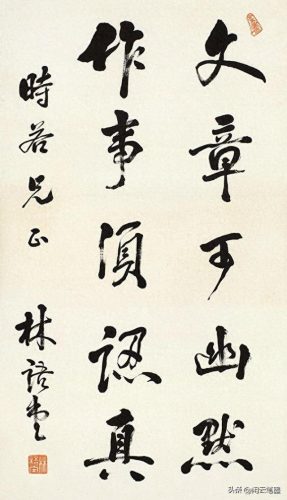 文章可幽默
作事须認真
時若兄正
林語堂
头条@问云笔墨